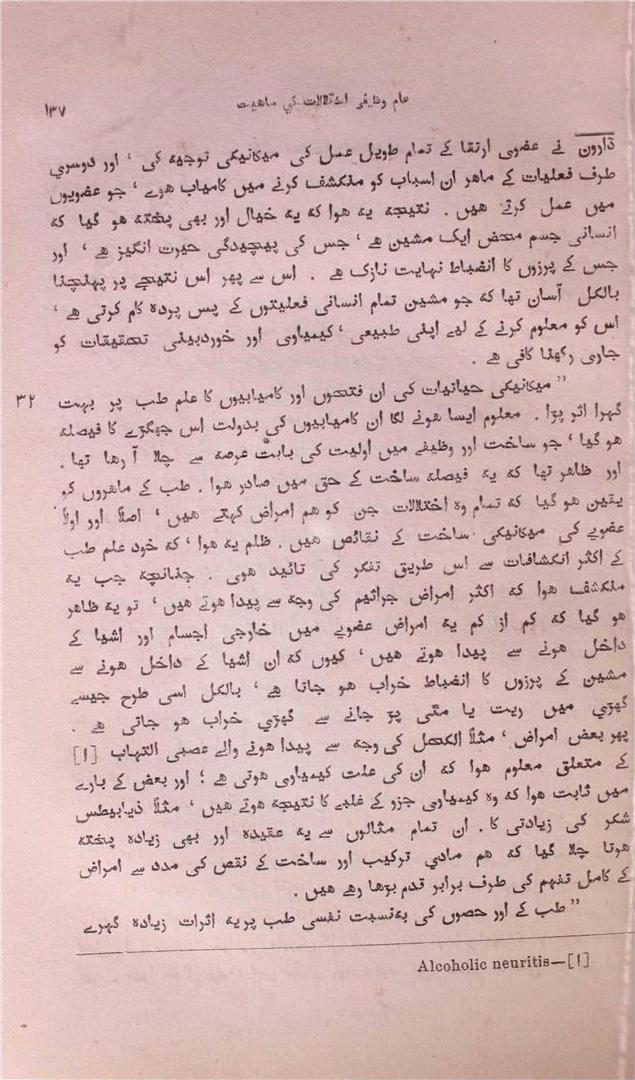 عام وظیفی اختلالات کی ماهیت
۱۳۷
ڈارون نے عضوی ارتقا کے تمام طویل عمل کی میکانیکی توجیه کی ‘ اور دوسری
طرف فعلیات کے ماهر ان اسباب کو منکشف کرنے میں کامیاب هوے ‘ جو عضویوں
میں عمل کرتے هیں . نتیجه یه هوا که یه خیال اور بھی پخته هو گیا که
انسانی جسم محض ایک مشین هے ‘ جس کی پیچیدگی حیرت انگیز هے ‘ اور
جس کے پرزوں کا انضباط نہایت نازک هے . اس سے پھر اس نتیجے پر پہنچنا
بالکل آسان تھا که جو مشین تمام انسانی فعلیتوں کے پس پرده کام کرتی هے ‘
اس کو معلوم کرنے کے لیے اپنی طبیعی ‘ کیمیاوی اور خوردبینی تحقیقات کو
جاری رکھنا کافی هے .
” میکانیکی حیاتیات کی ان فتحوں اور کامیابیوں کا علم طب پر بہت
۳۲
گہرا اثر پڑا . معلوم ایسا هونے لگا ان کامیابیوں کی بدولت اس جھگڑے کا فیصله
هو گیا ‘ جو ساخت اور وظیفے میں اولیت کی بابت عرصه سے چلا آ رها تھا .
اور ظاهر تھا که یه فیصله ساخت کے حق میں صادر هوا . طب کے ماهروں کو
یقین هو گیا که تمام وه اختلالات جن کو هم امراض کہتے هیں ‘ اصلاً اور اولاً
عضویے کی میکانیکی ساخت کے نقائص هیں . ظلم یه هوا ‘ که خود علم طب
کے اکثر انکشافات سے اس طریق تفکر کی تائید هوی . چنانچه جب یه
منکشف هوا که اکثر امراض جراثیم کی وجه سے پیدا هوتے هیں ‘ تو یه ظاهر
هو گیا که کم از کم یه امراض عضویے میں خارجی اجسام اور اشیا کے
داخل هونے سے پیدا هوتے هیں ‘ کیوں که ان اشیا کے داخل هونے سے
مشین کے پرزوں کا انضباط خراب هو جاتا هے ‘ بالکل اسی طرح جیسے
گھڑی میں ریت یا مٹی پڑ جانے سے گھڑی خراب هو جاتی هے .
پھر بعض امراض ‘ مثلاً الکحل کی وجه سے پیدا هونے والے عصبی التہاب [۱]
کے متعلق معلوم هوا که ان کی علت کیمیاوی هوتی هے ؛ اور بعض کے بارے
میں ثابت هوا که وه کیمیاوی جزو کے غلبے کا نتیجه هوتے هیں ‘ مثلاً ذیابیطس
شکر کی زیادتی کا . ان تمام مثالوں سے یه عقیده اور بھی زیاده پخته
هوتا چلا گیا که هم مادی ترکیب اور ساخت کے نقص کی مدد سے امراض
کے کامل تفہم کی طرف برابر قدم بڑھا رهے هیں .
” طب کے اور حصوں کی به نسبت نفسی طب پر یه اثرات زیاده گہرے
Alcoholic neuritis—[۱]